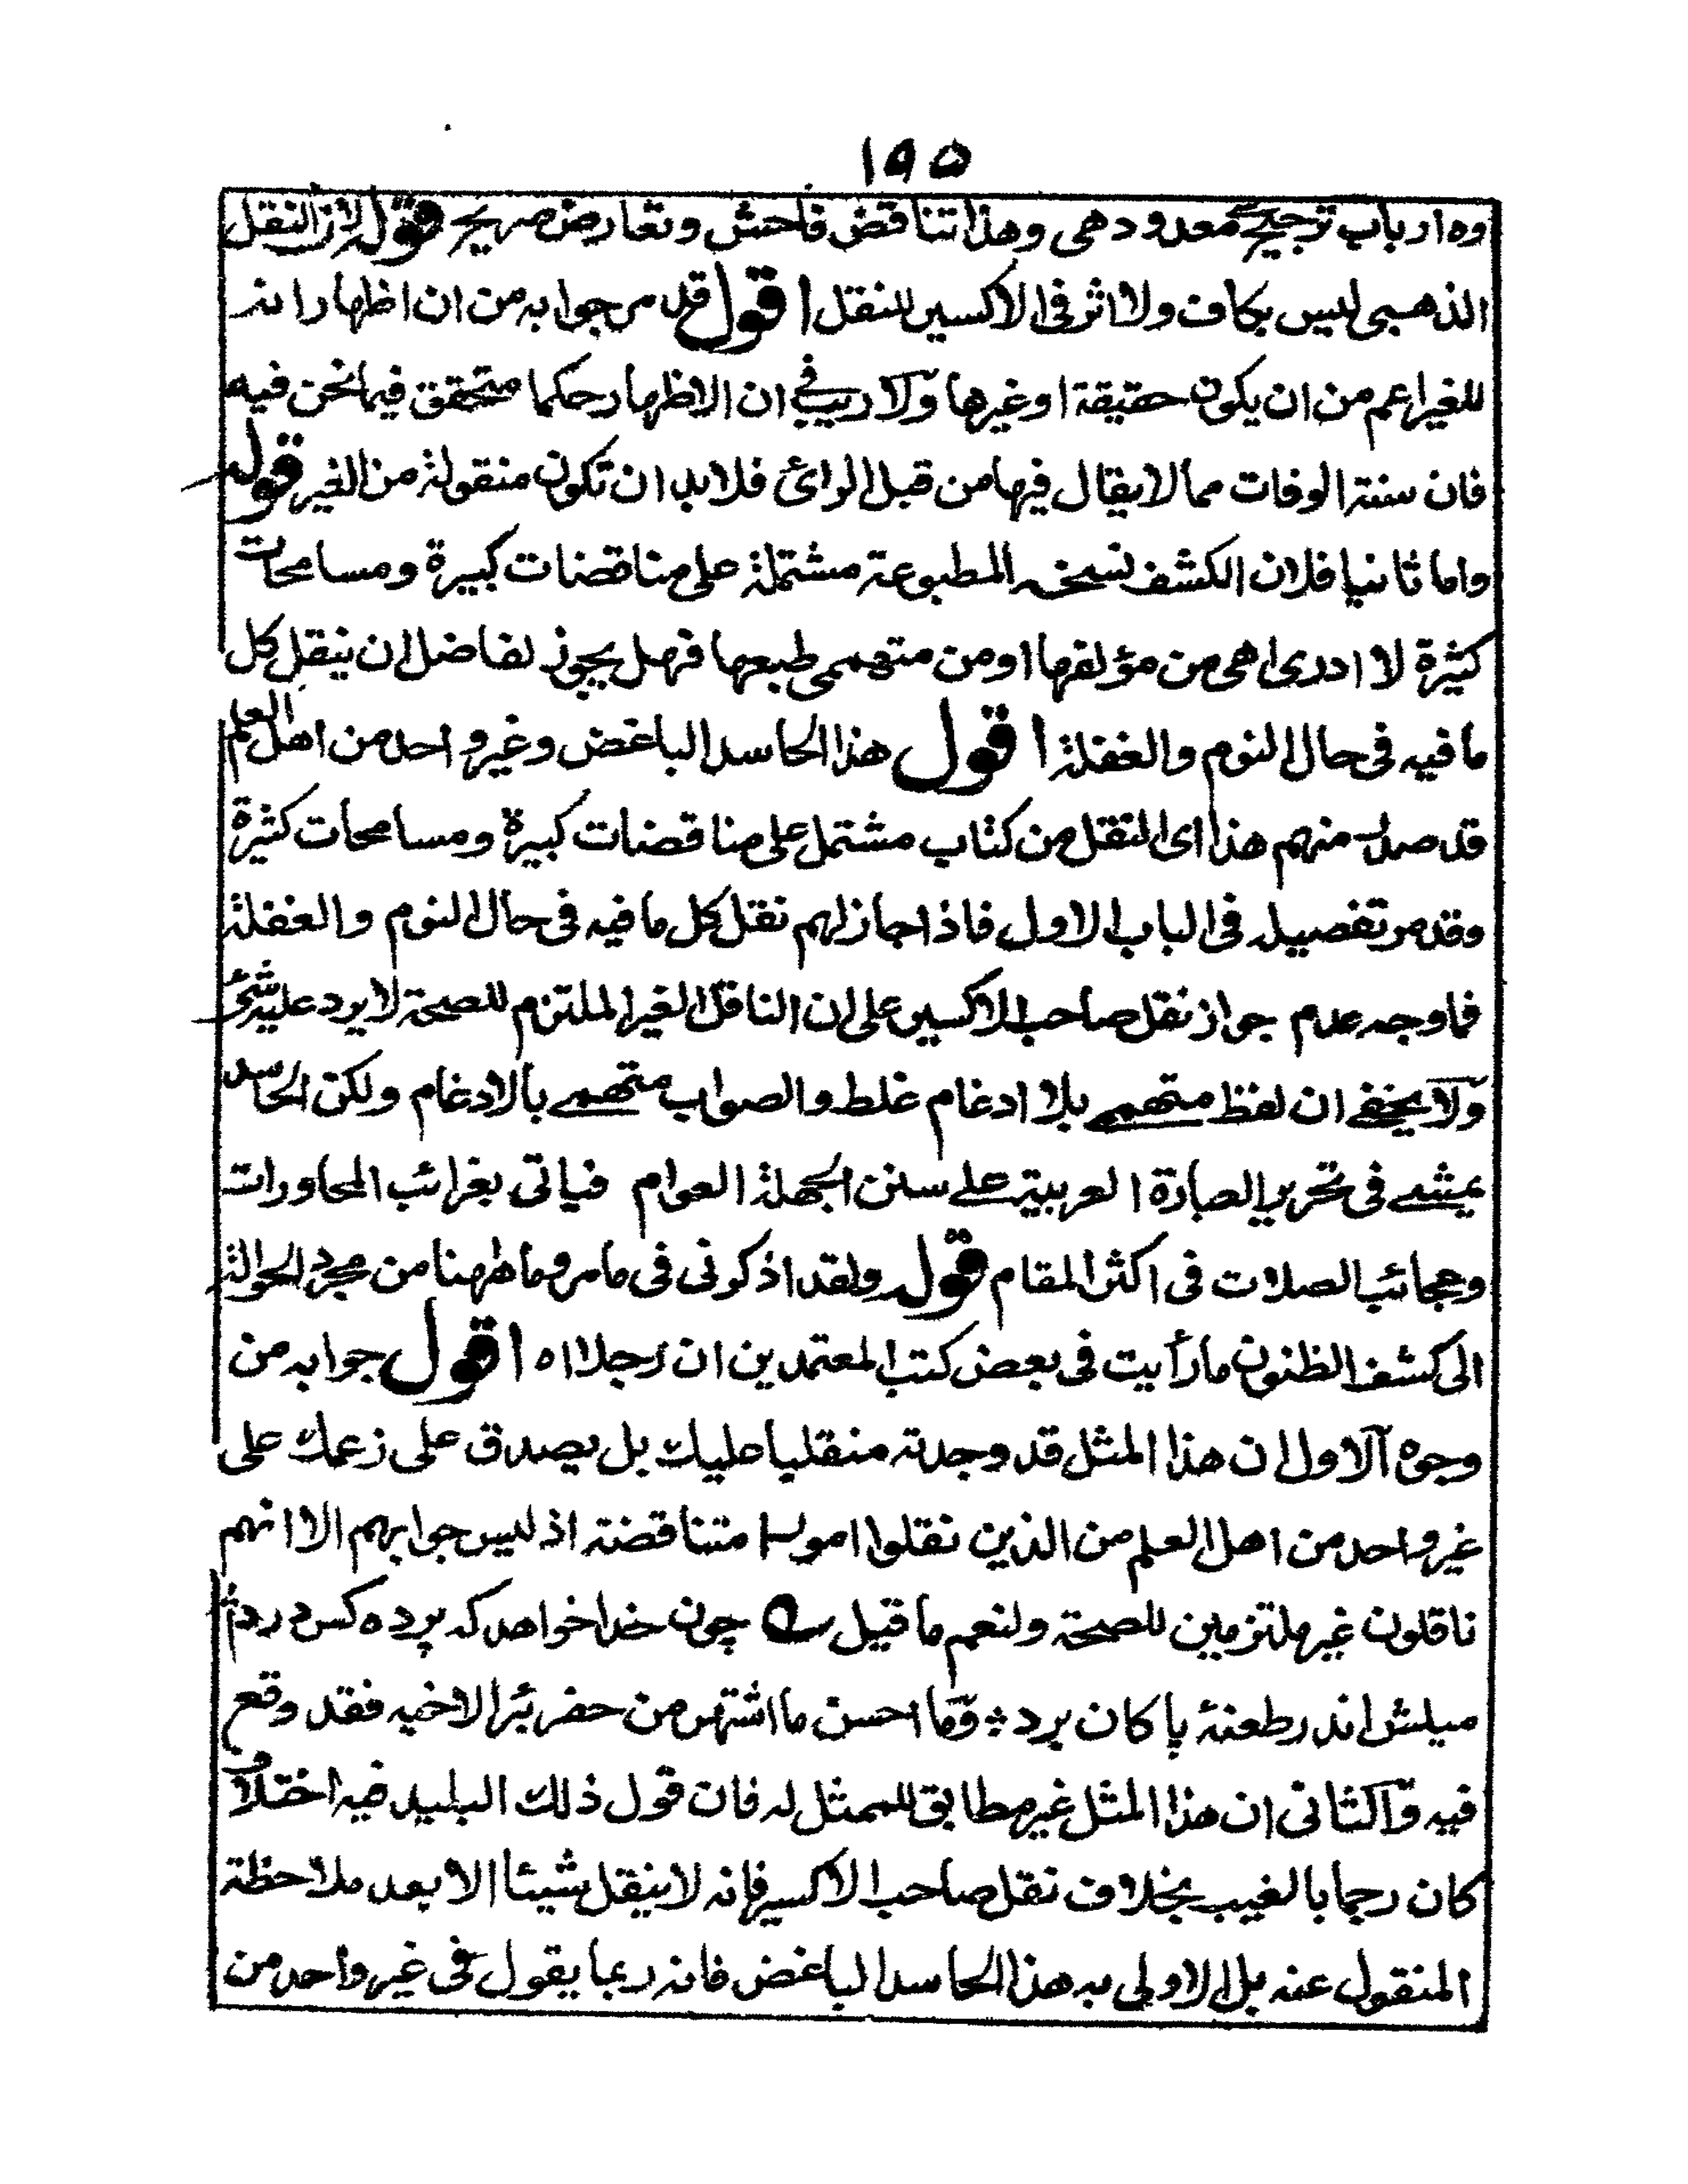 ١٩٥
وه ارباب ترجيح معدود هى وهذا تناقض فاحش وتعارض صريح قوله لان النقل
الذهبى ليس بكاف ولا اثر فى الاكسير للنقل اقول قد مر جوابه من ان اظهار انه
للغير اعم من ان يكون حقيقة او غيرها ولا ريب فى ان الاظهار حكما متحقق فيما نحن فيه
فان سنة الوفات مما لا يقال فيها من قبل الرائ فلا بد ان تكون منقولة من الغير قوله
واما ثانيا فلان الكشف نسخه المطبوعة مشتملة على مناقضات كبيرة ومسامحات
كثيرة لا ادرى اهى من مؤلفها او من متهممى طبعها فهل يجوز لفاضل ان ينقل كل
ما فيه فى حال النوم والغفلة اقول هذا الحاسد الباغض وغير واحد من اهل العلم
قد صدر منهم هذا اى النقل من كتاب مشتمل على مناقضات كبيرة ومسامحات كثيرة
وقد مر تفصيله فى الباب الاول فاذا جاز لهم نقل كل ما فيه فى حال النوم والغفلة
فما وجه عدم جواز نقل صاحب الاكسير على ان الناقل الغير الملتزم للصحة لا يرد عليه شئ
ولا يخفى ان لفظ متهممے بلا ادغام غلط والصواب متهمے بالادغام ولكن الحاسد
يمشے فى تحرير العبارة العربية علے سنن الجهلة العوام فياتى بغرائب المحاورات
وعجائب الصلات فى اكثر المقام قوله ولقد اذكرنى فى ما مر وما ههنا من مجرد الحوالة
الى كشف الظنون ما رأيت فى بعض كتب المعتمدين ان رجلا اه اقول جوابه من
وجوه الاول ان هذا المثل قد وجدته منقلبا عليك بل يصدق على زعمك على
غير واحد من اهل العلم من الذين نقلوا امورا متناقضة اذ ليس جوابهم الا انهم
ناقلون غير ملتزمين للصحة ولنعم ما قيل ؎ چون خدا خواهد كه پرده كس درد
ميلش اندر طعنۀ پاكان برد ⁘ وما احسن ما اشتهر من حفر بئرا لاخيه فقد وقع
فيه والثانى ان هذا المثل غير مطابق للممثل له فان قول ذلك البليد فيه اختلاف
كان رجما بالغيب بخلاف نقل صاحب الاكسير فانه لا ينقل شيئا الا بعد ملاحظة
المنقول عنه بل الاولى به هذا الحاسد الباغض فانه ربما يقول فى غير واحد من